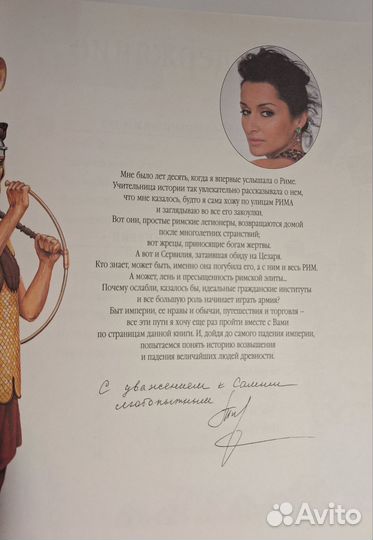 Мне было лет десять, когда я впервые услышала о Риме.
Учительница истории так увлекательно рассказывала о нем,
что мне казалось, будто я сама хожу по улицам РИМА
и заглядываю во все его закоулки.
Вот они, простые римские легионеры, возвращаются домой
после многолетних странствий;
вот жрецы, приносящие богам жертвы.
А вот и Сервилия, затаившая обиду на Цезаря.
Кто знает, может быть, именно она погубила его, а с ним и весь РИМ.
А может, лень и пресыщенность римской элиты...
Почему ослабли, казалось бы, идеальные гражданские институты
и все большую роль начинает играть армия?
Быт империи, ее нравы и обычаи, путешествия и торговля –
все эти пути я хочу еще раз пройти вместе с Вами
по страницам данной книги. И, дойдя до самого падения империи,
попытаемся понять историю возвышения
и падения величайших людей древности.
С уважением к самым
любопытным
Avito